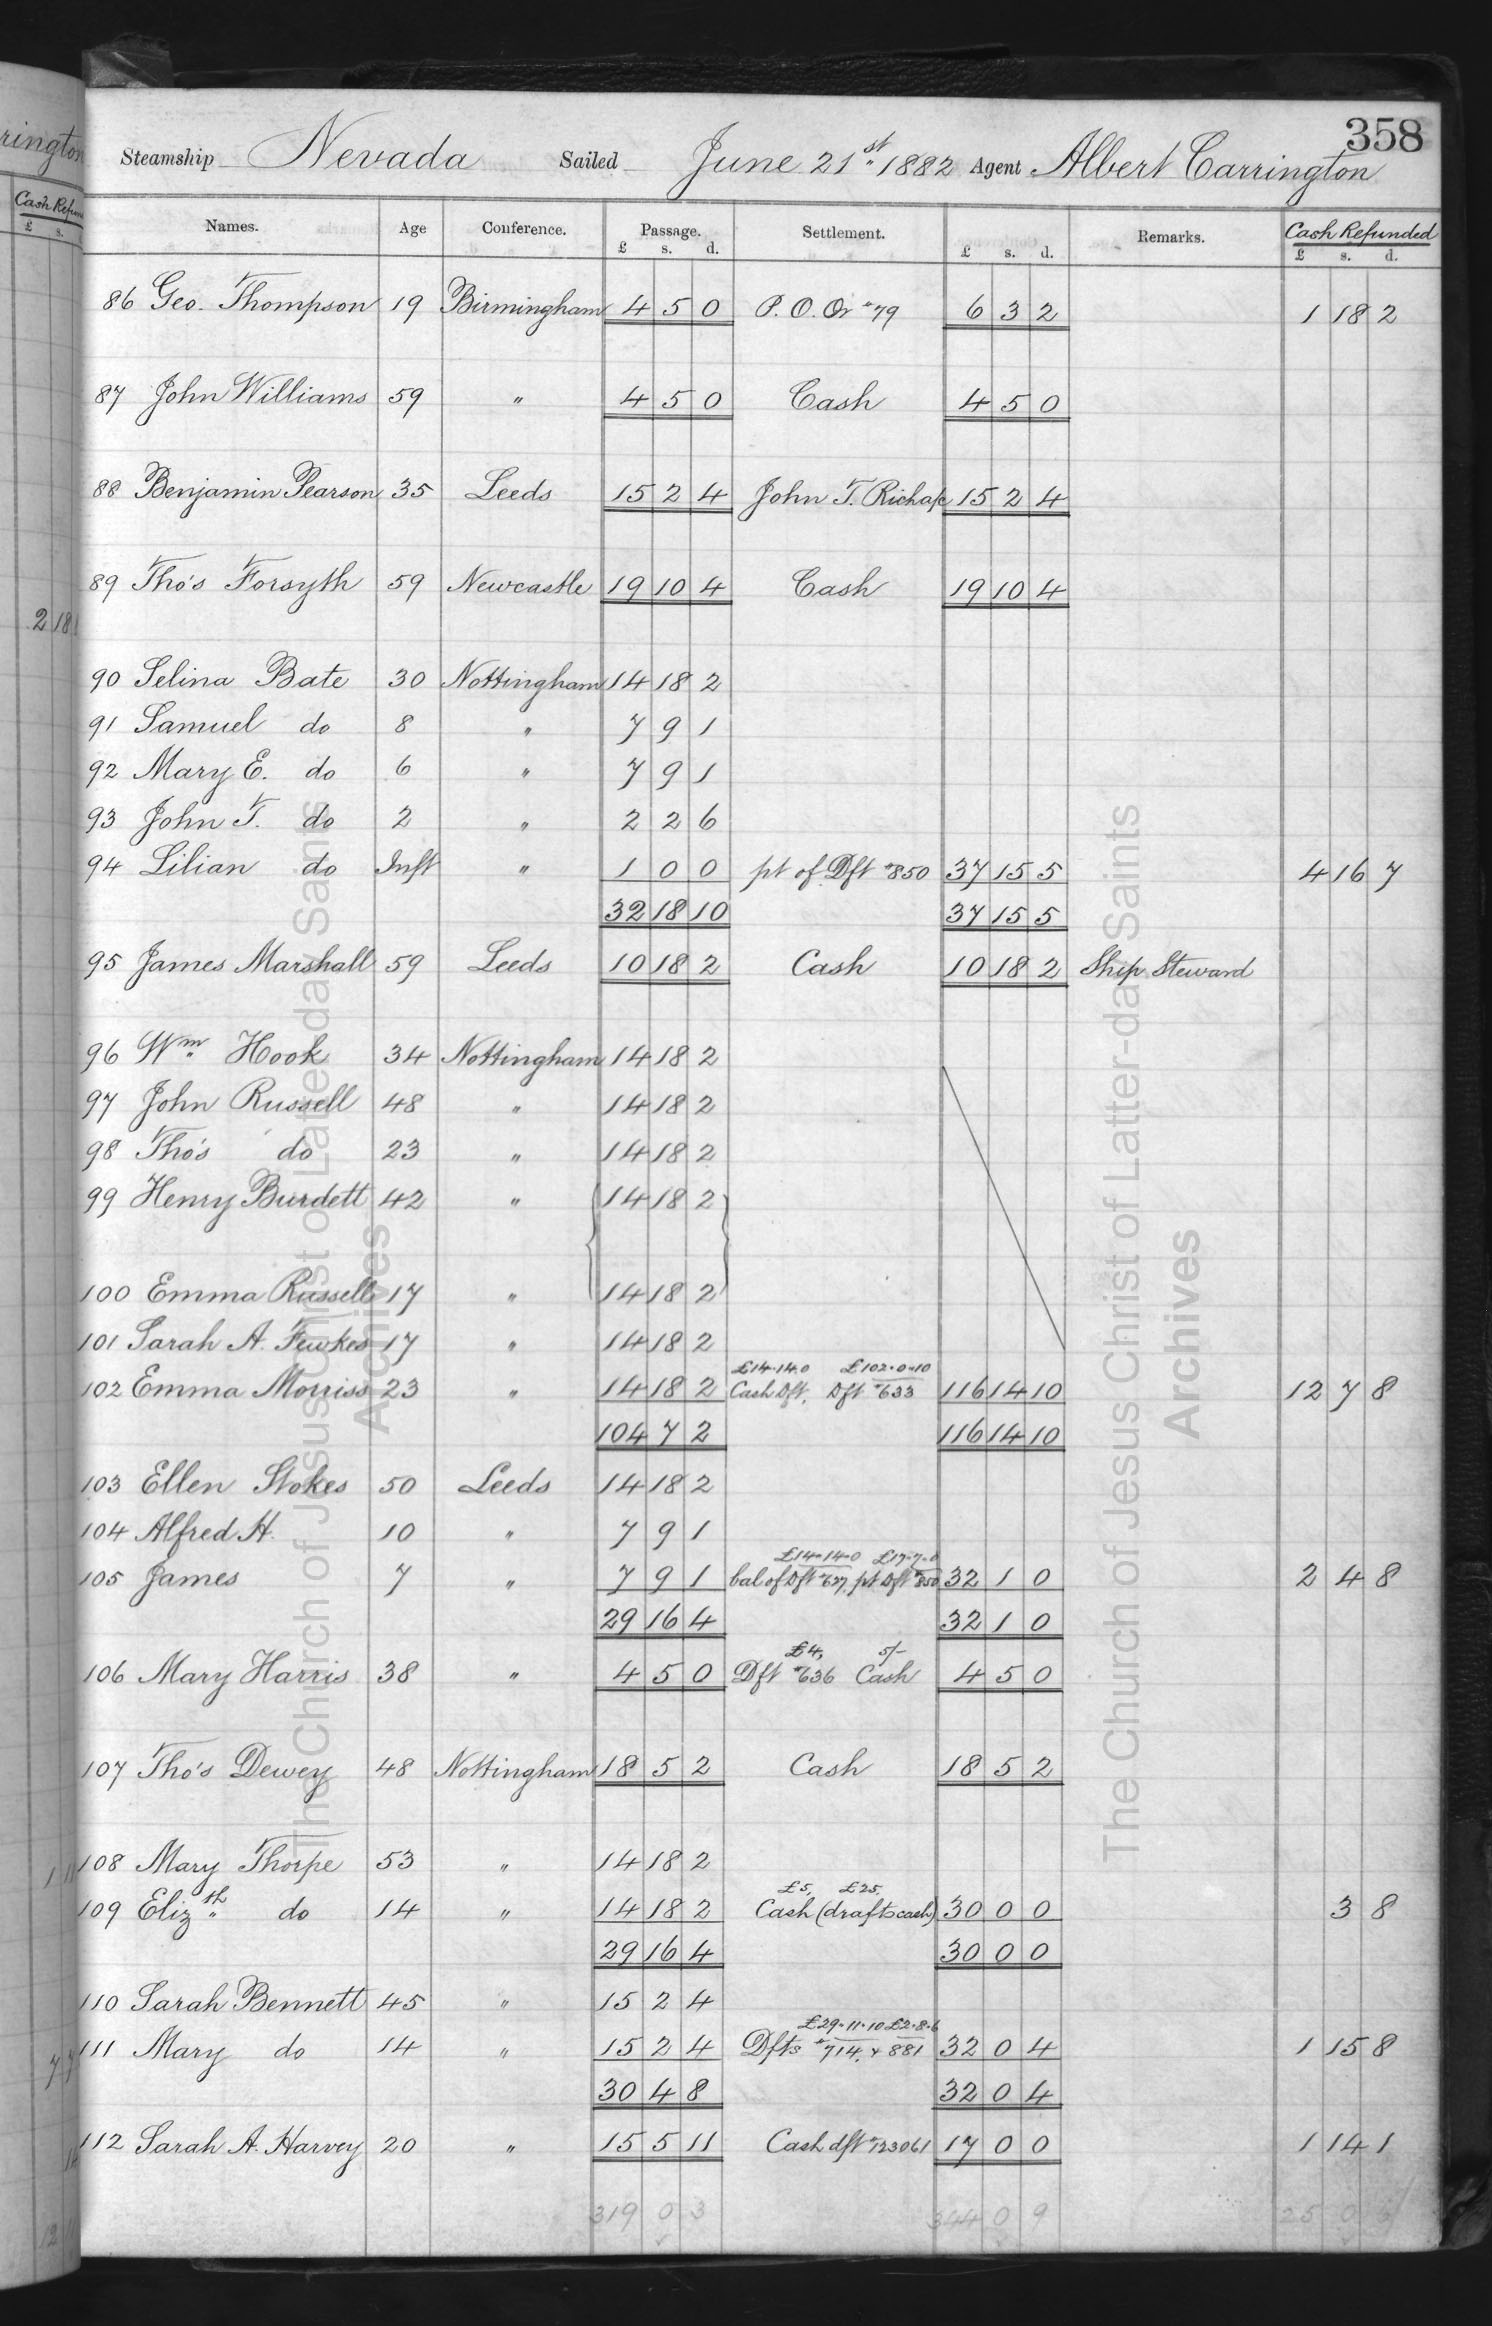 358
Steamship Nevada Sailed June 21st 1882 Agent Albert Carrington
Names. Age Conference. Passage. Settlement. Remarks. Cash Refunded
£ s. d. £ s. d. £ s. d.
86 Geo. Thompson 19 Birmingham 4 5 0 P. O. Or #79 6 3 2 1 18 2
87 John Williams 59 " 4 5 0 Cash 4 5 0
88 Benjamin Pearson 35 Leeds 15 2 4 John T. Rich a/c 15 2 4
89 Tho's Forsyth 59 Newcastle 19 10 4 Cash 19 10 4
90 Selina Bate 30 Nottingham 14 18 2
91 Samuel do 8 " 7 9 1
92 Mary E. do 6 " 7 9 1
93 John T. do 2 " 2 2 6
94 Lilian do Inft " 1 0 0 pt of Dft #850 37 15 5 4 16 7
32 18 10 37 15 5
95 James Marshall 59 Leeds 10 18 2 Cash 10 18 2 Ship Steward
96 Wm Hook 34 Nottingham 14 18 2
97 John Russell 48 " 14 18 2
98 Tho's do 23 " 14 18 2
99 Henry Burdett 42 " 14 18 2
100 Emma Russell 17 " 14 18 2
101 Sarah A. Fewkes 17 " 14 18 2
£14.14.0 £102.0.10
102 Emma Morriss 23 " 14 18 2 Cash Dft, Dft #633 116 14 10 12 7 8
104 7 2 116 14 10
103 Ellen Stokes 50 Leeds 14 18 2
104 Alfred H. 10 " 7 9 1
£14-14-0 £17-7-0
105 James 7 " 7 9 1 bal of Dft #627, pt Dft #850 32 1 0 2 4 8
29 16 4 32 1 0
£4, 5/-
106 Mary Harris 38 " 4 5 0 Dft #636 Cash 4 5 0
107 Tho's Dewey 48 Nottingham 18 5 2 Cash 18 5 2
108 Mary Thorpe 53 " 14 18 2
£5, £25,
109 Elizth do 14 " 14 18 2 Cash (drafts cash) 30 0 0 3 8
29 16 4 30 0 0
110 Sarah Bennett 45 " 15 2 4
£29-11-10 £2-8-6
111 Mary do 14 " 15 2 4 Dfts #714, & 881 32 0 4 1 15 8
30 4 8 32 0 4
112 Sarah A. Harvey 20 " 15 5 11 Cash dft #123061 17 0 0 1 14 1
319 0 3 344 0 9 25 0 6
The Church of Jesus Christ of Latter-day Saints
Archives
The Church of Jesus Christ of Latter-day Saints
Archives